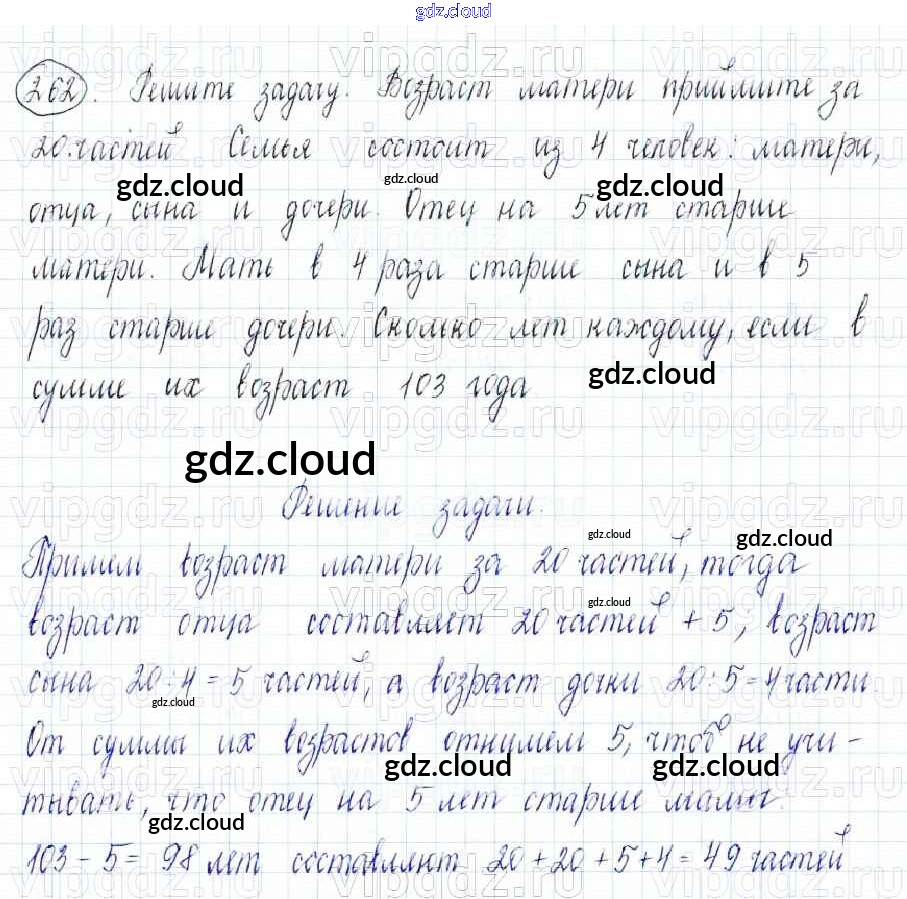 gdz.cloud
262. Решите задачу. Возраст матери приймите за
20 частей Семья состоит из 4 человек: матери,
gdz.cloud gdz.cloud gdz.cloud
отца, сына и дочери. Отец на 5 лет старше
матери. Мать в 4 раза старше сына и в 5
раз старше дочери. Сколько лет каждому, если в
сумме их возраст 103 года
gdz.cloud
gdz.cloud
Решение задачи.
gdz.cloud gdz.cloud
Примем возраст матери за 20 частей, тогда
gdz.cloud
возраст отца составляет 20 частей + 5; возраст
сына 20:4=5 частей, а возраст дочки 20:5=4 части.
gdz.cloud
От суммы их возрастов отнимем 5, чтоб не учи-
gdz.cloud gdz.cloud
тывать, что отец на 5 лет старше мамы.
gdz.cloud
103-5=98 лет составляют 20+20+5+4=49 частей